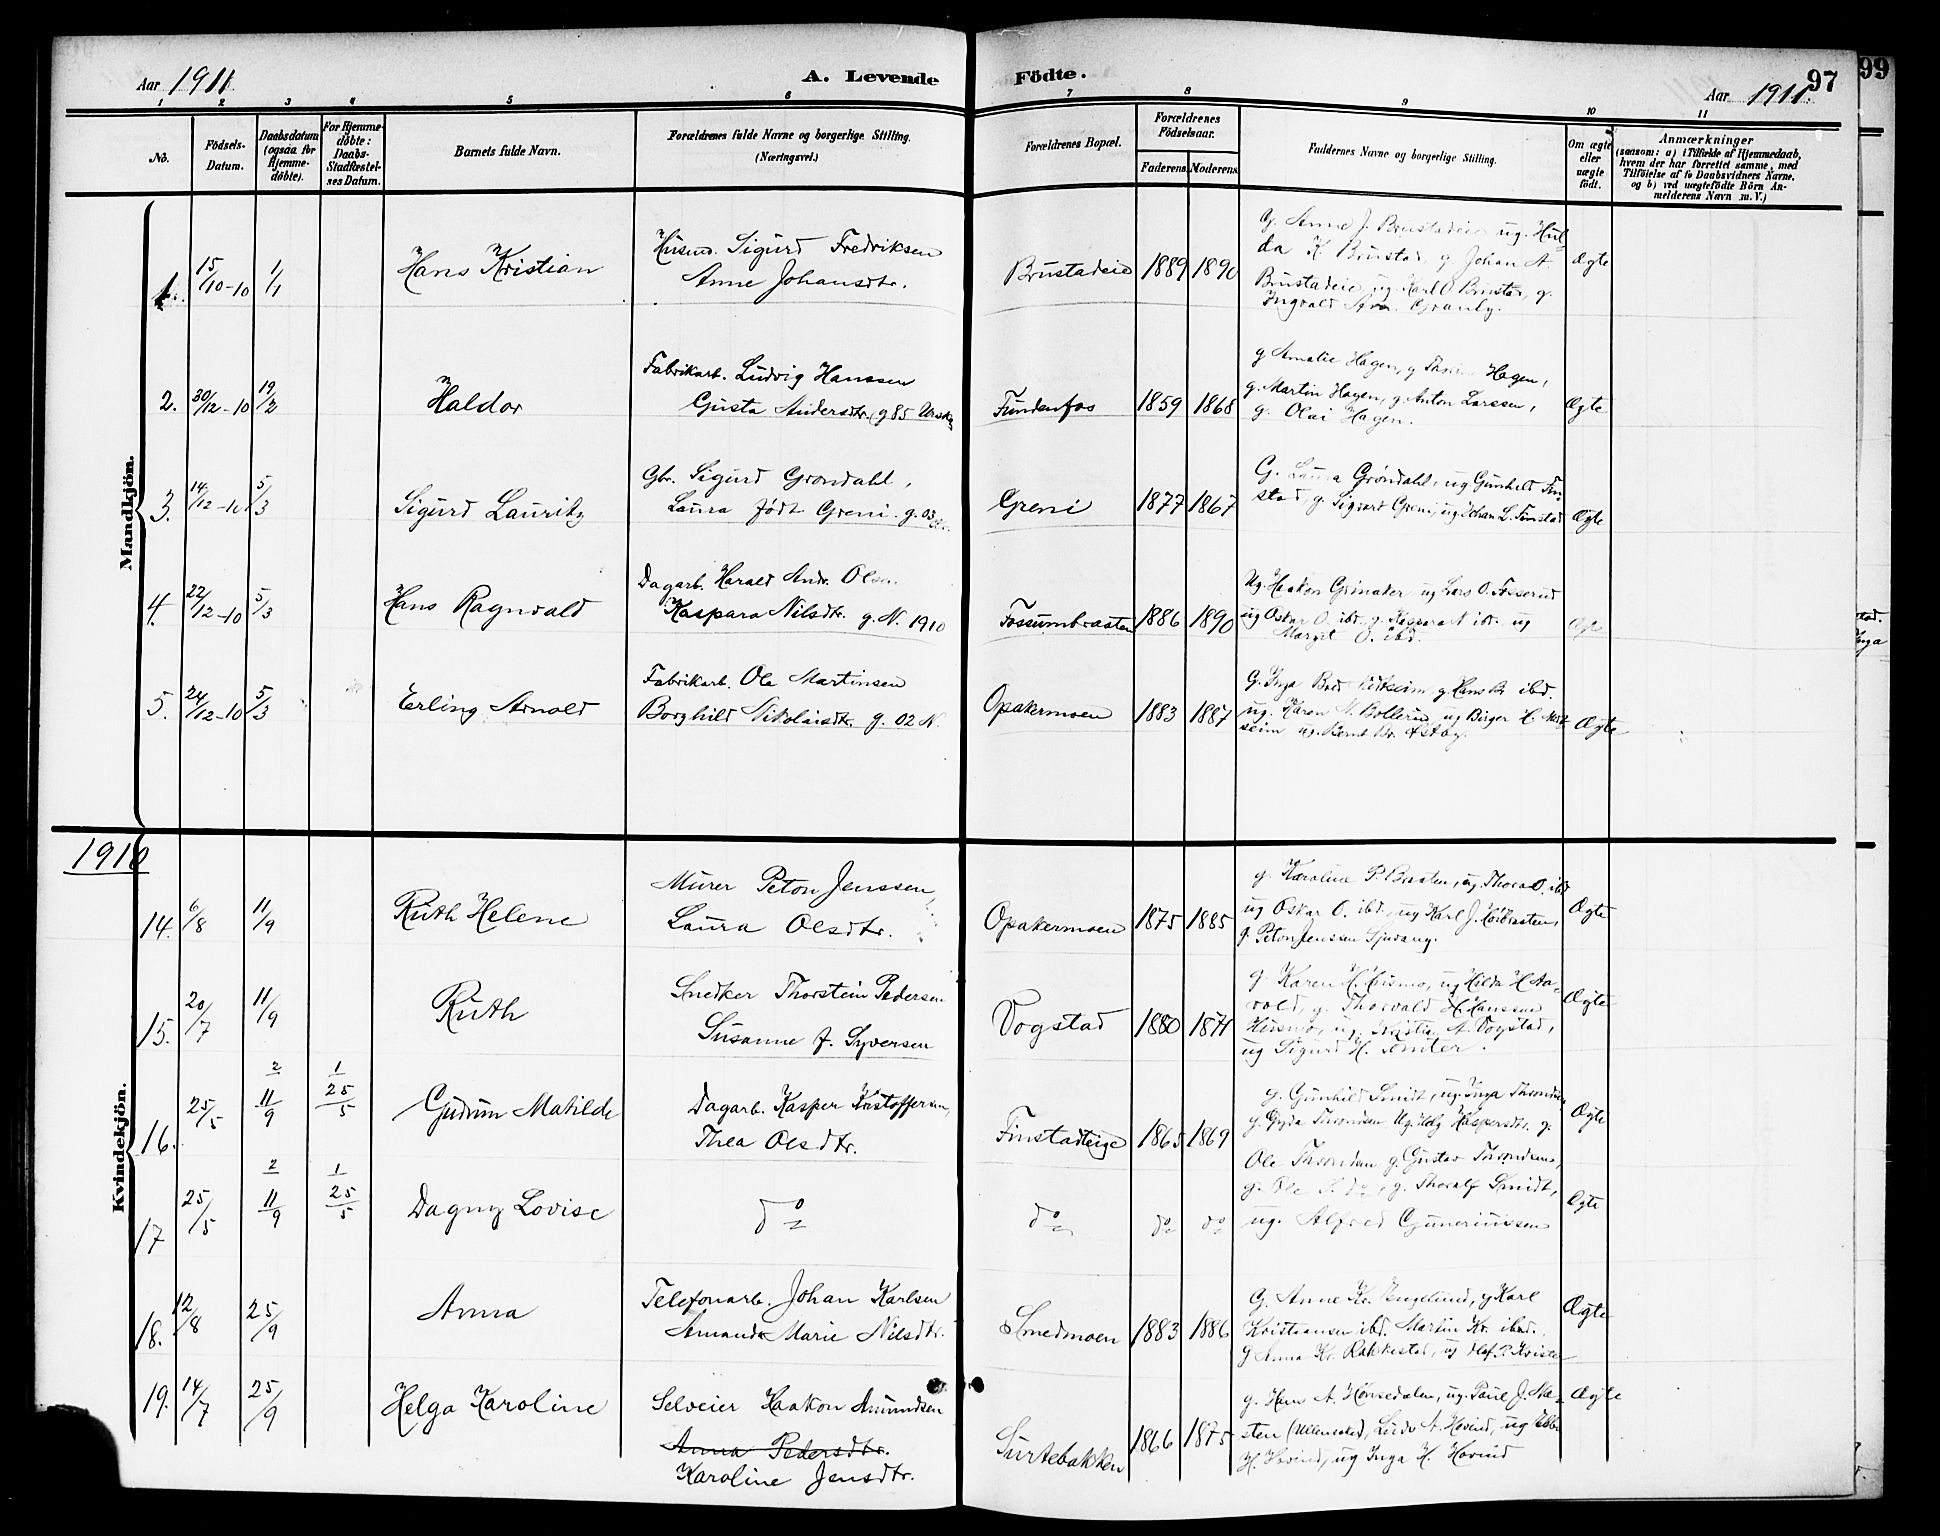 Aar 1911
A. Levende Födte.
97
99
Aar 1911.
1 2 3 4 5 6 7 8 9 10 11
No.
Födsels-
Datum.
Daabsdatum
(ogsaa for
Hjemme-
döbte).
For Hjemme-
döbte:
Daabs-
Stadfæstel-
ses Datum.
Barnets fulde Navn.
Forældrenes fulde Navne og borgerlige Stilling.
(Næringsvei.)
Forældrenes Bopæl.
Forældrenes
Födselsaar.
Faderens Moderens
Faddernes Navne og borgerlige Stilling.
Om ægte
eller
uægte
födt.
Anmærkninger
(saasom: a) i Tilfælde af Hjemmedaab,
hvem der har forrettet samme, med
Tilföielse af to Daabsvidners Navne,
og b) ved uægtefödte Börn An-
melderens Navn m. V.)
Mandkjön.
1. 15/10-10 1/1
Hans Kristian
Husmd. Sigurd Fredriksen
Anne Johansdtr.
Brustadeie 1889 1890
G. Anne J. Brustadeie ug. Hul-
da K Brustad, g Johan A
Brustadeie, ug. Karl O Brustad, g.
Ingvald Granly.
Ægte
2. 30/12-10 19/2
Haldor
Fabrikarb. Ludvig Hanssen
Gusta Andersdtr. g 85 Ursk
Fundenfos 1859 1868
g Amalie Hagen, g Hagen,
g. Martin Hagen, g. Anton Larssen,
g. Olai Hagen.
Ægte
3. 14/12-10 5/3
Sigurd Lauritz
Gbr. Sigurd Grondahl,
Laura født Greni. g. 03
Greni 1877 1867
G. Laura Grøndahl, ug Gunhild Fin-
stad, g. Sigvart Greni, ug Johan L. Finstad
Ægte
4. 22/12-10 5/3
Hans Ragnvald
Dagarb. Harald Andr. Olsen
Kaspara Nilsdtr. g. N. 1910
Fossumbraaten 1886 1890
Ug. Haakon Grimaker ug Lars O. Fosserud
ug Oskar O. ibd. g. Kaspara N ibd. ug
Margit O. ibd.
Ægte
5. 24/12-10 5/3
Erling Arnold
Fabrikarb. Ole Martinsen
Borghild Nikolaisdtr. g. 02 N.
Opakermoen 1883 1887
G. Inga g. Hans ibd.
ug. Karen N. Bollerud ug Birger H.
seim ug. Bernt Br. Østby.
Ægte
1910
Kvindekjön.
14. 6/8 11/9
Ruth Helene
Murer Peton Jenssen
Laura Olsdtr.
Opakermoen 1875 1885
g. Karoline P. Braaten, ug Thora O. ibd
ug Oskar O. ibd., ug Karl J. Høibraaten,
g. Peton Jenssen Sjuvang.
Ægte
15. 20/7 11/9
Ruth
Snedker Thorstein Pedersen
Susanne f. Syversen
Vogstad 1880 1871
g. Karen H. Husmo, ug Hilda H Aa-
vold, g. Thorvald H. Hanssen
Husmo, ug. A. Vogstad,
ug Sigurd H. Tomter.
Ægte
16. 25/5 2 11/9 1 25/5
Gudrun Matilde
Dagarb. Kasper Kristoffersen,
Thea Olsdtr.
Finstadteige 1865 1869
g. Gunhild Smidt, ug. Inga Throndsen
g. Gyda Throndsen Ug. Kaspersdtr. g.
Ole Throndsen g. Gustav Throndsen,
Ægte
17 25/5 2 11/9 1 25/5
Dagny Lovise
do
do do do
g. Ole do, g. Thoralf Smidt,
ug. Alfred Guneriussen
Ægte
18. 12/8 25/9
Anna
Telefonarb. Johan Karlsen
Amanda Marie Nilsdtr.
Smedmoen 1883 1886
G. Anne Kr. Englund, g Karl
Kristiansen ibd. Martin Kr. ibd.,
g Anna Kr. Rakkestad, ug Olaf P. Kvister
Ægte
19. 14/7 25/9
Helga Karoline
Selveier Haakon Amundsen
Anna Pedersdtr.
Karoline Jensdtr.
Surtebakken 1866 1875
g. Hans A. Hønsedalen, ug. Paul J. Na-
sten (Ullensaker), A. Hovind, ug Ebba
H. Hovind, ug Inga H. Hovind
Ægte